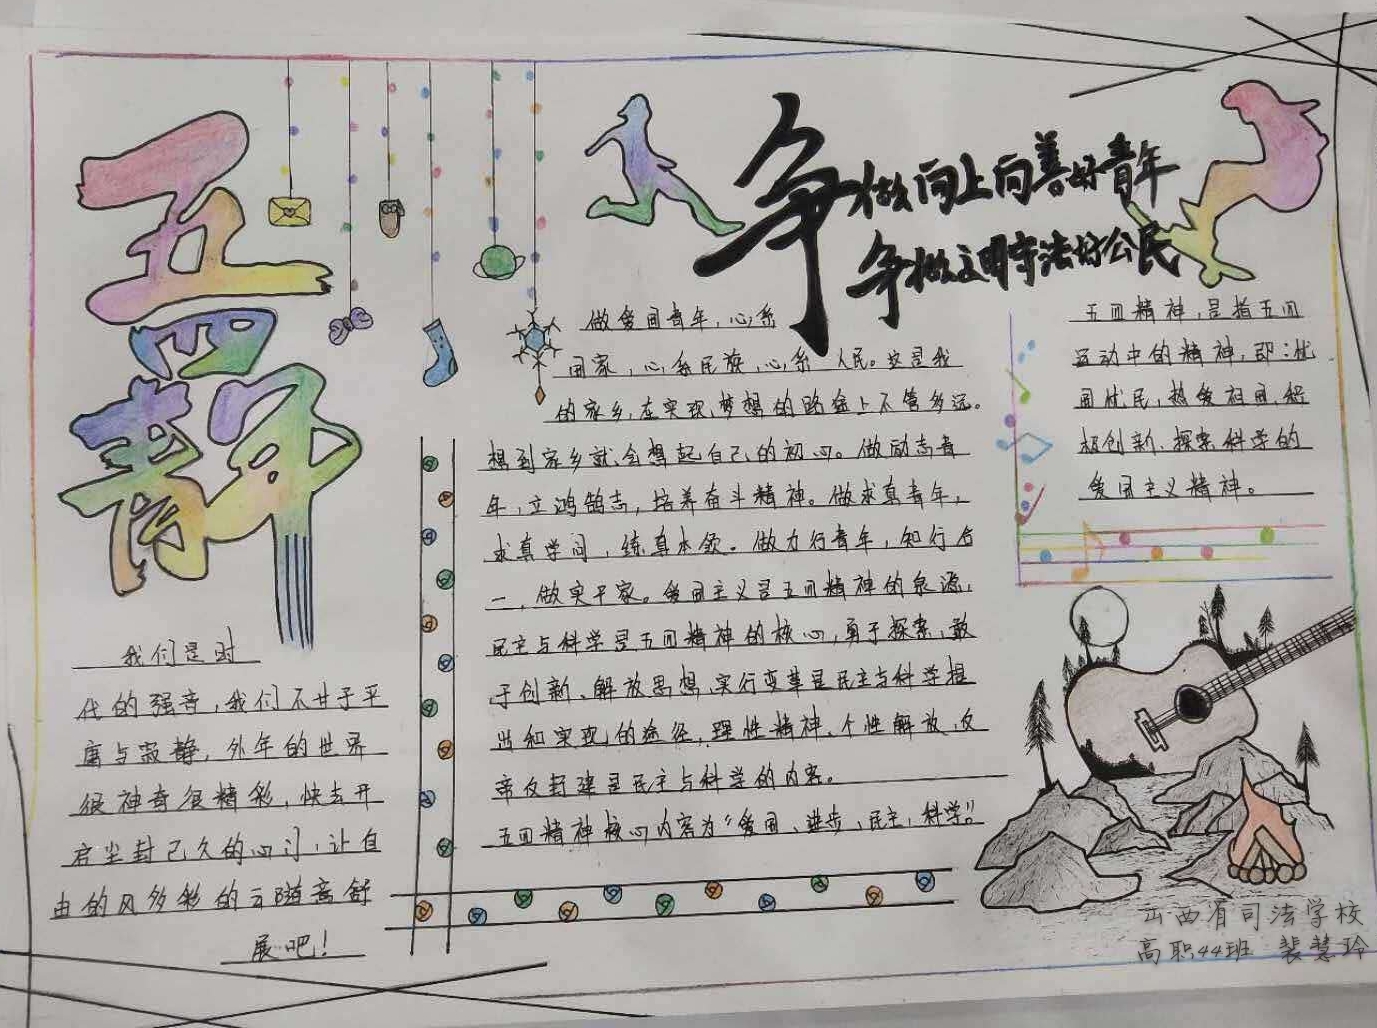 五
四
青年
争做向上向善好青年
争做文明守法好公民
我们是时
代的强音，我们不甘于平
庸与寂静，外年的世界
很神奇很精彩，快去开
启尘封已久的心门，让自
由的风多彩的云随意舒
展吧！
做爱国青年，心系
国家，心系民族，心系人民。这是我
的家乡，在实现梦想的路途上不管多远。
想到家乡就会想起自己的初心。做励志青
年，立鸿鹄志，培养奋斗精神。做求真青年，
求真学问，练真本领。做力行青年，知行合
一，做实干家。爱国主义是五四精神的泉源，
民主与科学是五四精神的核心，勇于探索、敢
于创新、解放思想、实行变革是民主与科学提
出和实现的途径，理性精神、个性解放、反
帝反封建是民主与科学的内容。
五四精神核心内容为“爱国、进步、民主、科学”
五四精神，是指五四
运动中的精神，即：忧
国忧民，热爱祖国，积
极创新，探索科学的
爱国主义精神。
山西省司法学校
高职44班 裴慧玲